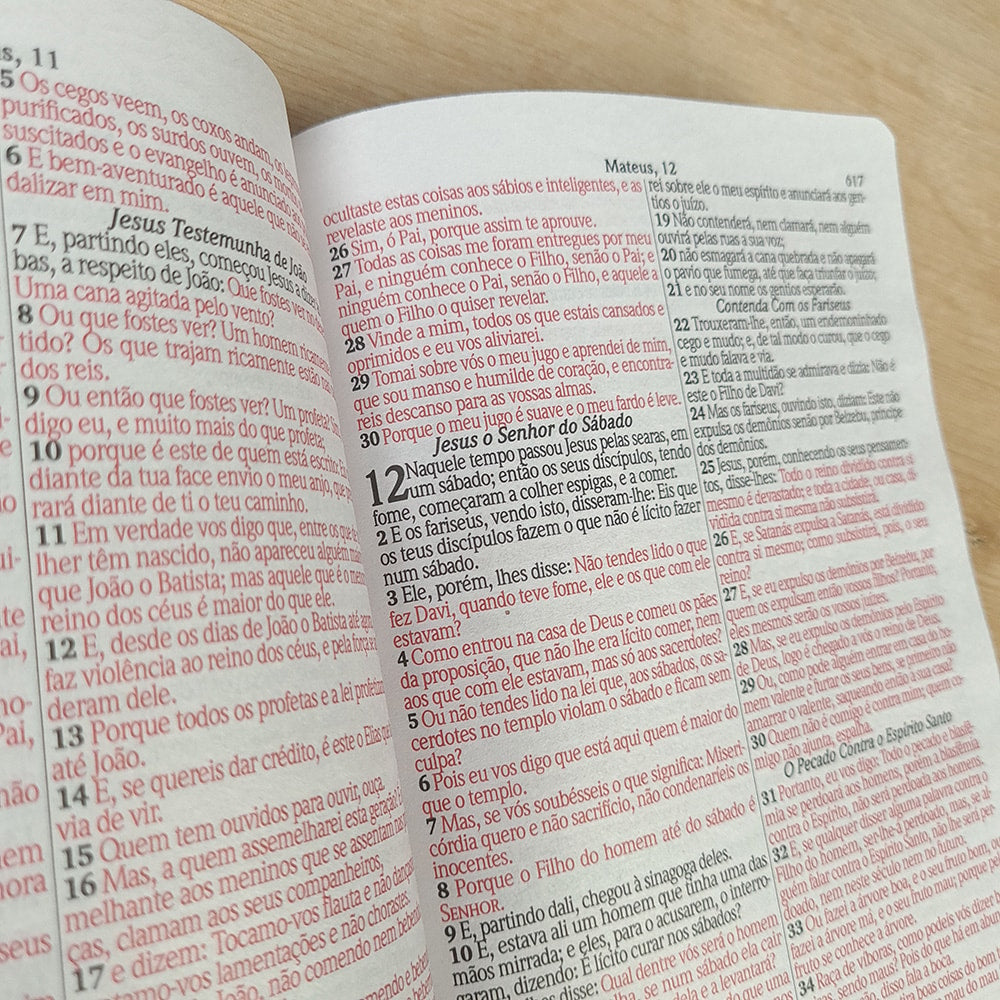 11
5 Os cegos veem, os coxos andam, os
purificados, os surdos ouvem, os
suscitados e o evangelho é anunciado
6 E bem-aventurado é aquele que não
dalizar em mim.
Jesus Testemunha de João
7 E, partindo eles, começou Jesus a dizer
bas, a respeito de João: Que fostes ver no
Uma cana agitada pelo vento?
8 Ou que fostes ver? Um homem ricamente
tido? Os que trajam ricamente estão nas
dos reis.
9 Ou então que fostes ver? Um profeta?
digo eu, e muito mais do que profeta;
10 porque é este de quem está escrito:
diante da tua face envio o meu anjo, que
rará diante de ti o teu caminho.
11 Em verdade vos digo que, entre os que
lher têm nascido, não apareceu alguém
que João o Batista; mas aquele que é o
reino dos céus é maior do que ele.
12 E, desde os dias de João o Batista até
faz violência ao reino dos céus, e pela força
deram dele.
13 Porque todos os profetas e a lei
até João.
14 E, se quereis dar crédito, é este o Elias
via de vir.
15 Quem tem ouvidos para ouvir, ouça.
16 Mas, a quem assemelharei esta geração?
melhante aos meninos que se assentam nas
ças, clamam aos seus companheiros,
17 e dizem: Tocamo-vos flauta e não
tamo-vos lamentações e não chorastes.
João, não comendo nem
Mateus, 12
617
ocultaste estas coisas aos sábios e inteligentes, e as
revelaste aos meninos.
26 Sim, ó Pai, porque assim te aprouve.
27 Todas as coisas me foram entregues por meu
Pai, e ninguém conhece o Filho, senão o Pai; e
ninguém conhece o Pai, senão o Filho, e aquele a
quem o Filho o quiser revelar.
28 Vinde a mim, todos os que estais cansados e
oprimidos e eu vos aliviarei.
29 Tomai sobre vós o meu jugo e aprendei de mim,
que sou manso e humilde de coração, e encontra-
reis descanso para as vossas almas.
30 Porque o meu jugo é suave e o meu fardo é leve.
Jesus o Senhor do Sábado
12 Naquele tempo passou Jesus pelas searas, em
um sábado; então os seus discípulos, tendo
fome, começaram a colher espigas, e a comer.
2 E os fariseus, vendo isto, disseram-lhe: Eis que
os teus discípulos fazem o que não é lícito fazer
num sábado.
3 Ele, porém, lhes disse: Não tendes lido o que
fez Davi, quando teve fome, ele e os que com ele
estavam?
4 Como entrou na casa de Deus e comeu os pães
da proposição, que não lhe era lícito comer, nem
aos que com ele estavam, mas só aos sacerdotes?
5 Ou não tendes lido na lei que, aos sábados, os sa-
cerdotes no templo violam o sábado e ficam sem
culpa?
6 Pois eu vos digo que está aqui quem é maior do
que o templo.
7 Mas, se vós soubésseis o que significa: Miseri-
córdia quero e não sacrifício, não condenaríeis os
inocentes.
8 Porque o Filho do homem até do sábado é
SENHOR.
9 E, partindo dali, chegou à sinagoga deles.
10 E, estava ali um homem que tinha uma das
mãos mirrada; e eles, para o acusarem, o interro-
garam, dizendo: É lícito curar nos sábados?
disse: Qual dentre vós será o homem
se num sábado ela cair
e a levantará?
rei sobre ele o meu espírito e anunciará aos gen-
tios o juízo.
19 Não contenderá, nem clamará, nem alguém
ouvirá pelas ruas a sua voz;
20 não esmagará a cana quebrada e não apagará
o pavio que fumega, até que faça triunfar o juízo;
21 e no seu nome os gentios esperarão.
Contenda Com os Fariseus
22 Trouxeram-lhe, então, um endemoninhado
cego e mudo; e, de tal modo o curou, que o cego
e mudo falava e via.
23 E toda a multidão se admirava e dizia: Não é
este o Filho de Davi?
24 Mas os fariseus, ouvindo isto, diziam: Este não
expulsa os demônios senão por Belzebu, príncipe
dos demônios.
25 Jesus, porém, conhecendo os seus pensamen-
tos, disse-lhes: Todo o reino dividido contra si
mesmo é devastado; e toda a cidade, ou casa, di-
vidida contra si mesma não subsistirá.
26 E, se Satanás expulsa a Satanás, está dividido
contra si mesmo; como subsistirá, pois, o seu
reino?
27 E, se eu expulso os demônios por Belzebu, por
quem os expulsam então vossos filhos? Portanto,
eles mesmos serão os vossos juízes.
28 Mas, se eu expulso os demônios pelo Espírito
de Deus, logo é chegado a vós o reino de Deus.
29 Ou, como pode alguém entrar em casa do ho-
mem valente e furtar os seus bens, se primeiro não
amarrar o valente, saqueando então a sua casa?
30 Quem não é comigo é contra mim; quem co-
migo não ajunta, espalha.
O Pecado Contra o Espírito Santo
31 Portanto, eu vos digo: Todo o pecado e blasfê-
mia se perdoará aos homens, porém a blasfêmia
contra o Espírito, não será perdoada aos homens.
32 E, se qualquer disser alguma palavra contra o
Filho do homem, ser-lhe-á perdoado, mas, se al-
guém falar contra o Espírito Santo, não lhe será per-
doado, nem neste século nem no futuro.
33 Ou fazei a árvore boa, e o seu fruto bom, ou
fazei a árvore má, e o seu fruto mau; porque pelo
fruto se conhece a árvore.
34 Raça de víboras, como podeis vós dizer
sendo maus? Pois do que há em
disso fala a boca.